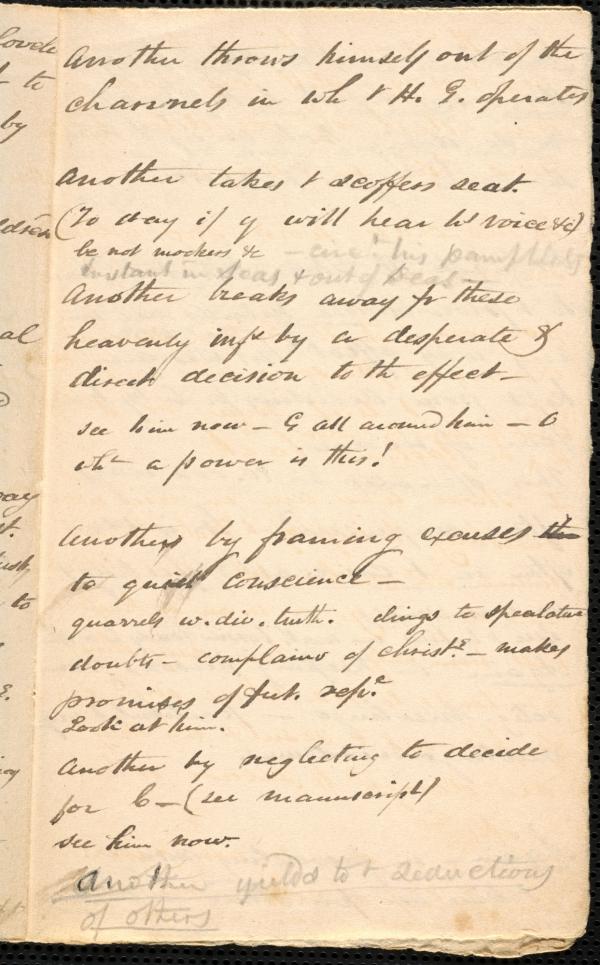 Another throws himself out of the
channels in wh t H. G. operates
Another takes t scoffers seat.
(To day if y will hear his voice &c)
be not mockers &c - circ. his pamphlets
instant in seas & out of seas -
Another breaks away fr these
heavenly infs by a desperate &
direct decision to th effect -
see him now - G all around him - O
wht a power is this!
Another by framing excuses
to quiet conscience -
quarrels w. div. truth. clings to
doubts - complains of Christs - makes
promises of fut. repe
Look at him.
Another by neglecting to decide
for C - (see manuscript)
see him now.
Another yields to t seductions
of others
loved
to
by
al
to